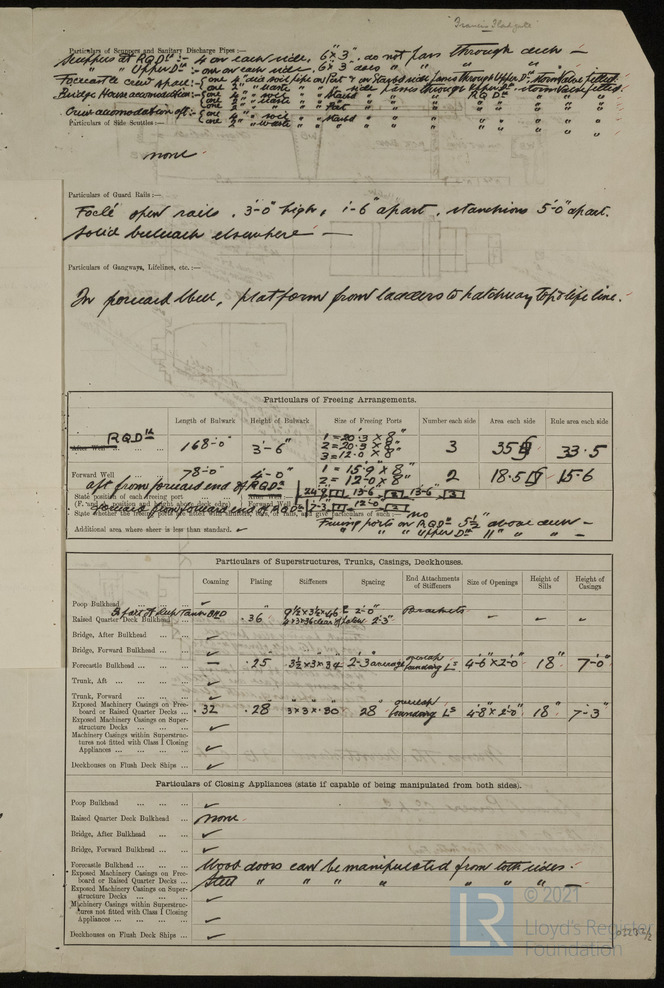 Particulars of Scuppers and Sanitary Discharge Pipes :—
Scuppers at RQDk :- 4 on each side, 6" x 3". do not pass through deck —
" " Upper Dk :- one on each side - 6" x 3" does " "
Forecastle crew space :- { one 4" dia soil pipe on Port & on Starbd side passes through Upper Dk. storm valve fitted
Bridge House accomodation :-
Crew accomodation aft :-
Particulars of Side Scuttles :—
none
Particulars of Guard Rails :—
Focle open rails . 3'-0" high, 1'-6" apart, stanchions 5'-0" apart.
Solid bulwark elsewhere —
Particulars of Gangways, Lifelines, etc. :—
In forward Well, platform from ladders to hatchway top & life line.
Particulars of Freeing Arrangements.
Length of Bulwark Height of Bulwark Size of Freeing Ports Number each side Area each side Rule area each side
After Well RQDk 168'-0" 3'-6" 1 = 20.3 x 8" 2 = 20.3 x 8" 3 = 12.0 x 8" 3 35 33.5
Forward Well 78'-0" 4'-0" 1 = 15'.9 x 8" 2 = 12'-0 x 8" 2 18.5 15.6
aft from forward end of RQDk
State position of each freeing port
(F. and A. position and height above deck edge) Forward Well
forward from forward end of RQDk
no
Freeing ports on RQDk 5½" above deck —
Additional area where sheer is less than standard. ✓ " " " Upper Dk 11" " " —
Particulars of Superstructures, Trunks, Casings, Deckhouses.
Coaming Plating Stiffeners Spacing End Attachments of Stiffeners Size of Openings Height of Sills Height of Casings
Poop Bulkhead ✓
Raised Quarter Deck Bulkhead .36 2'-0" 2'-3" Brackets — — —
Bridge, After Bulkhead ✓
Bridge, Forward Bulkhead ✓
Forecastle Bulkhead — .25 3½ x 3 x .34 2'-3 average overlap bounding Ls 4'-6 x 2'-0" 18" 7'-0"
Trunk, Aft ✓
Trunk, Forward ✓
Exposed Machinery Casings on Free-
board or Raised Quarter Decks .32 .28 3 x 3 x .30 28" overlap bounding Ls 4'-8 x 2'-0" 18" 7'-3"
Exposed Machinery Casings on Super-
structure Decks ✓
Machinery Casings within Superstruc-
tures not fitted with Class I Closing
Appliances ✓
Deckhouses on Flush Deck Ships ✓
Particulars of Closing Appliances (state if capable of being manipulated from both sides).
Poop Bulkhead ✓
Raised Quarter Deck Bulkhead none
Bridge, After Bulkhead ✓
Bridge, Forward Bulkhead ✓
Forecastle Bulkhead Wood doors can be manipulated from both sides.
Exposed Machinery Casings on Free-
board or Raised Quarter Decks Steel " " " " " " " —
Exposed Machinery Casings on Super-
structure Decks ✓
Machinery Casings within Superstruc-
tures not fitted with Class I Closing
Appliances ✓
Deckhouses on Flush Deck Ships ✓
LR
© 2021
Lloyd's Register
Foundation